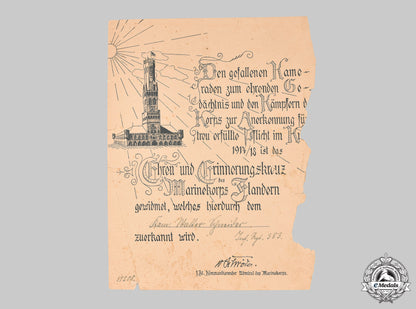 Den gefallenen Kame-
raden zum ehrenden Ge-
dächtnis und den Kämpfern d
Korps zur Anerkennung fü
treu erfüllte Pflicht im K
1914/18 ist das
Ehren und Erinnerungskreuz
des
Marinekorps Flandern
gewidmet, welches hierdurch dem
Kam. Walter Schneider
zuerkannt wird. Inf. Rgt. 353.
z. Zt. Kommandierender Admiral des Marinekorps.
eMedals